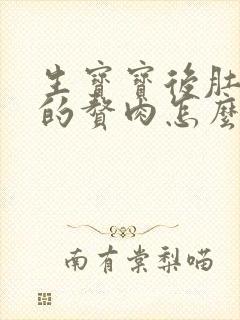 生寶寶後肚
的贅肉怎麼
南有棠梨喵